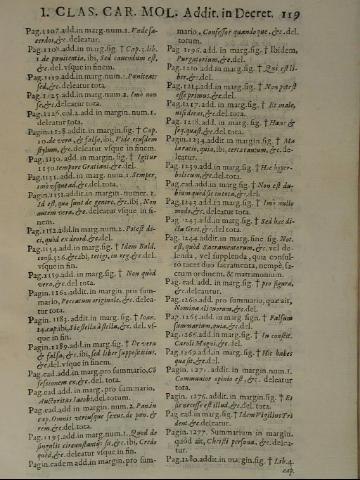 I. CLAS. CAR. MOL. Addit. in Decret. 119
Pag. 1107. add. in marg. num. 1. Vnde sa-
cerdos, &c. deleatur.
Pag. 1108. add. in marg. sig. † Cap. 3. lib.
1. de pœnitentia, ibi, Sed
&c. del. vsque in fin.
Pag. 1119. add. in marg. num. 1. Panitens
sed, &c. deleatur tota.
Pag. 1125. add. in marg. num. 2. Imò non
se, &c. deleatur tota.
Pag. 1126. col. 2. add. in margin. num. 1.
deleatur tota.
Pagin. 1128. addit. in margin. sig. † Cap.
10. de vero, & falso, ibi, Vide eiusdem
stylum, &c. deleatur vsque in finem.
Pag. 1130. addit. in margin. sig. † Igitur
1150. tempore Gratiani, &c. del.
Pag. 1131. add. in marg. num. 1. Semper,
imò vsque ad, &c. del. tota.
Pagin. 1151. addit. in margin. numer. 2.
Id est, quæ sunt de genere, &c. ibi, Non
autem vero, &c. deleatur vsque in fi-
nem.
Pag. 1152. add. in marg. num. 2. Potest di-
ci, quod ex iis ord. &c. del.
Pag. 1154. add. in marg. sig. † Idem Bald.
&c. ibi, tetigi, in reg. &c. del.
vsque in fin.
Pag. 1159. add. in marg. sig. † Non quod
vero, &c. del. tota.
Pagin. 1161. addit. in margin. pro sum-
mario, Peccatum originale, &c. delea-
tur tota.
Pagin. 1183. addit. in margin. sig. † Ioan.
14. cap. ibi, Hie stella à stella, &c. del. vs-
que in fin.
Pagin. 1189. add. in marg. sig. † De vero
& falso, &c. ibi, sed liber suppositius,
&c. del. vsque in fin.
Pag. ead. add. in marg. pro summario, Co
fessionem ex, &c. del. tota.
Pag. ead. add. in marg. pro summario,
Auctoritas Iacobi. del. totum.
Pag. ead. add. in margin. num. 2. Panite
cap. Omnis vtriusque sexus. de pœn. &
rem. &c. del. tota.
Pag. 1195. add. in marg. num. 1. Quod de
singulis circumstantiis, &c. ibi, Credo
quod, &c. deleatur vsque in fin.
Pagin. eadem add. in margin. pro sum-
mario, Confessor quandoque, &c. del.
totum.
Pag. 1196. add. in marg. sig. † Ibidem,
Purgatorium, &c. del.
Pag. 1210. add. in marg. sig. † Qui est li-
ber, &c. del.
Pag. 1214. add. in marg. sig. † Non potest
esse primus, &c. del.
Pag. 1217. add. in marg. sig. † Et male,
nisi dicat, &c. del. tota.
Pag. 1218. add. in marg. sig. † Hunc &
seq. quæst. &c. del. tota.
Pagin. 1234. addit. in margin. sig. † Ma
la ratio, quia, ibi, certa tamen, &c. de-
leatur.
Pag. 1239. add. in marg. sig. † Hæc hyper-
bolicum, &c. del. tota.
Pag. ead. add. in marg. sig. † Non est du-
bium quod sic intret, &c. del.
Pag. 1242. add. in marg. sig. † Imò nullo
modo, &c. deleatur tota.
Pag. 1243. add. in marg. sig. † Sed hæc di-
cta Grat. &c. del. tota.
Pag. 1244. add. in marg. sine sig. Not.
est, quod Sacramentorum, &c. vel de-
lenda, vel supplenda, quia consul-
tò tacet duo sacramenta, nempè, sa-
crum ordinem, & matrimonium.
Pag. ead. add. in marg. sig. † pro figura,
&c. deleatur.
Pag. 1260. add. pro summario, quæ ait,
Nomina eliorum, &c. del.
Pag. 1265. addit. in marg. sign. † Falsum
summarium, quia, &c. del.
Pag. 1266. add. in marg. sig. † In constit.
Caroli Magni, &c. del.
Pag. 1269. add. in marg. sig. † Hic habes
quæ sit, &c. del.
Pagin. 1271. addit. in margin. num. 1.
Communior opinio est, &c. deleatur
tota.
Pagin. 1276. addit. in margin. sig. † Et
sic vorsse est illud, &c. del. tota.
Pag. ead. in marg. sig. † Idem Piessius Tri
dent. &c. deleatur.
Pagin. 1277. Summarium in margin.
quod ait, Christi persona, &c. delea-
tur.
Pag. 1280. addit. in margin. sig. † Lib. 4.
cap.